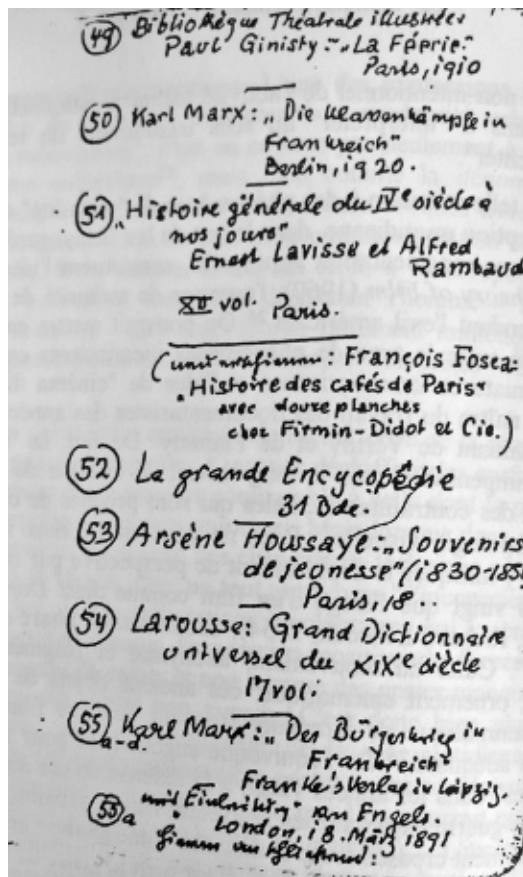 49 Bibliothèque Théatrale illustrée
Paul Ginisty: „La Féerie."
Paris, 1910
50 Karl Marx: „Die Klassenkämpfe in
Frankreich"
Berlin, 1920.
51 „Histoire générale du IVe siècle à
nos jours"
Ernest Lavisse et Alfred
Rambaud
XII vol. Paris.
François Fosca:
„Histoire des cafés de Paris"
avec douze planches
chez Firmin-Didot et Cie.)
52 La grande Encycopédie
31 Bde
53 Arsène Houssaye: „Souvenirs
de jeunesse" (1830-185
Paris, 18
54 Larousse: Grand Dictionnaire
universel du XIXe siècle
17 vol.
55 a-d Karl Marx: „Der Bürgerkrieg in
Frankreich"
Franke's Verlag in Leipzig.
55a mit Einleitung von Engels.
London, 18. März 1891